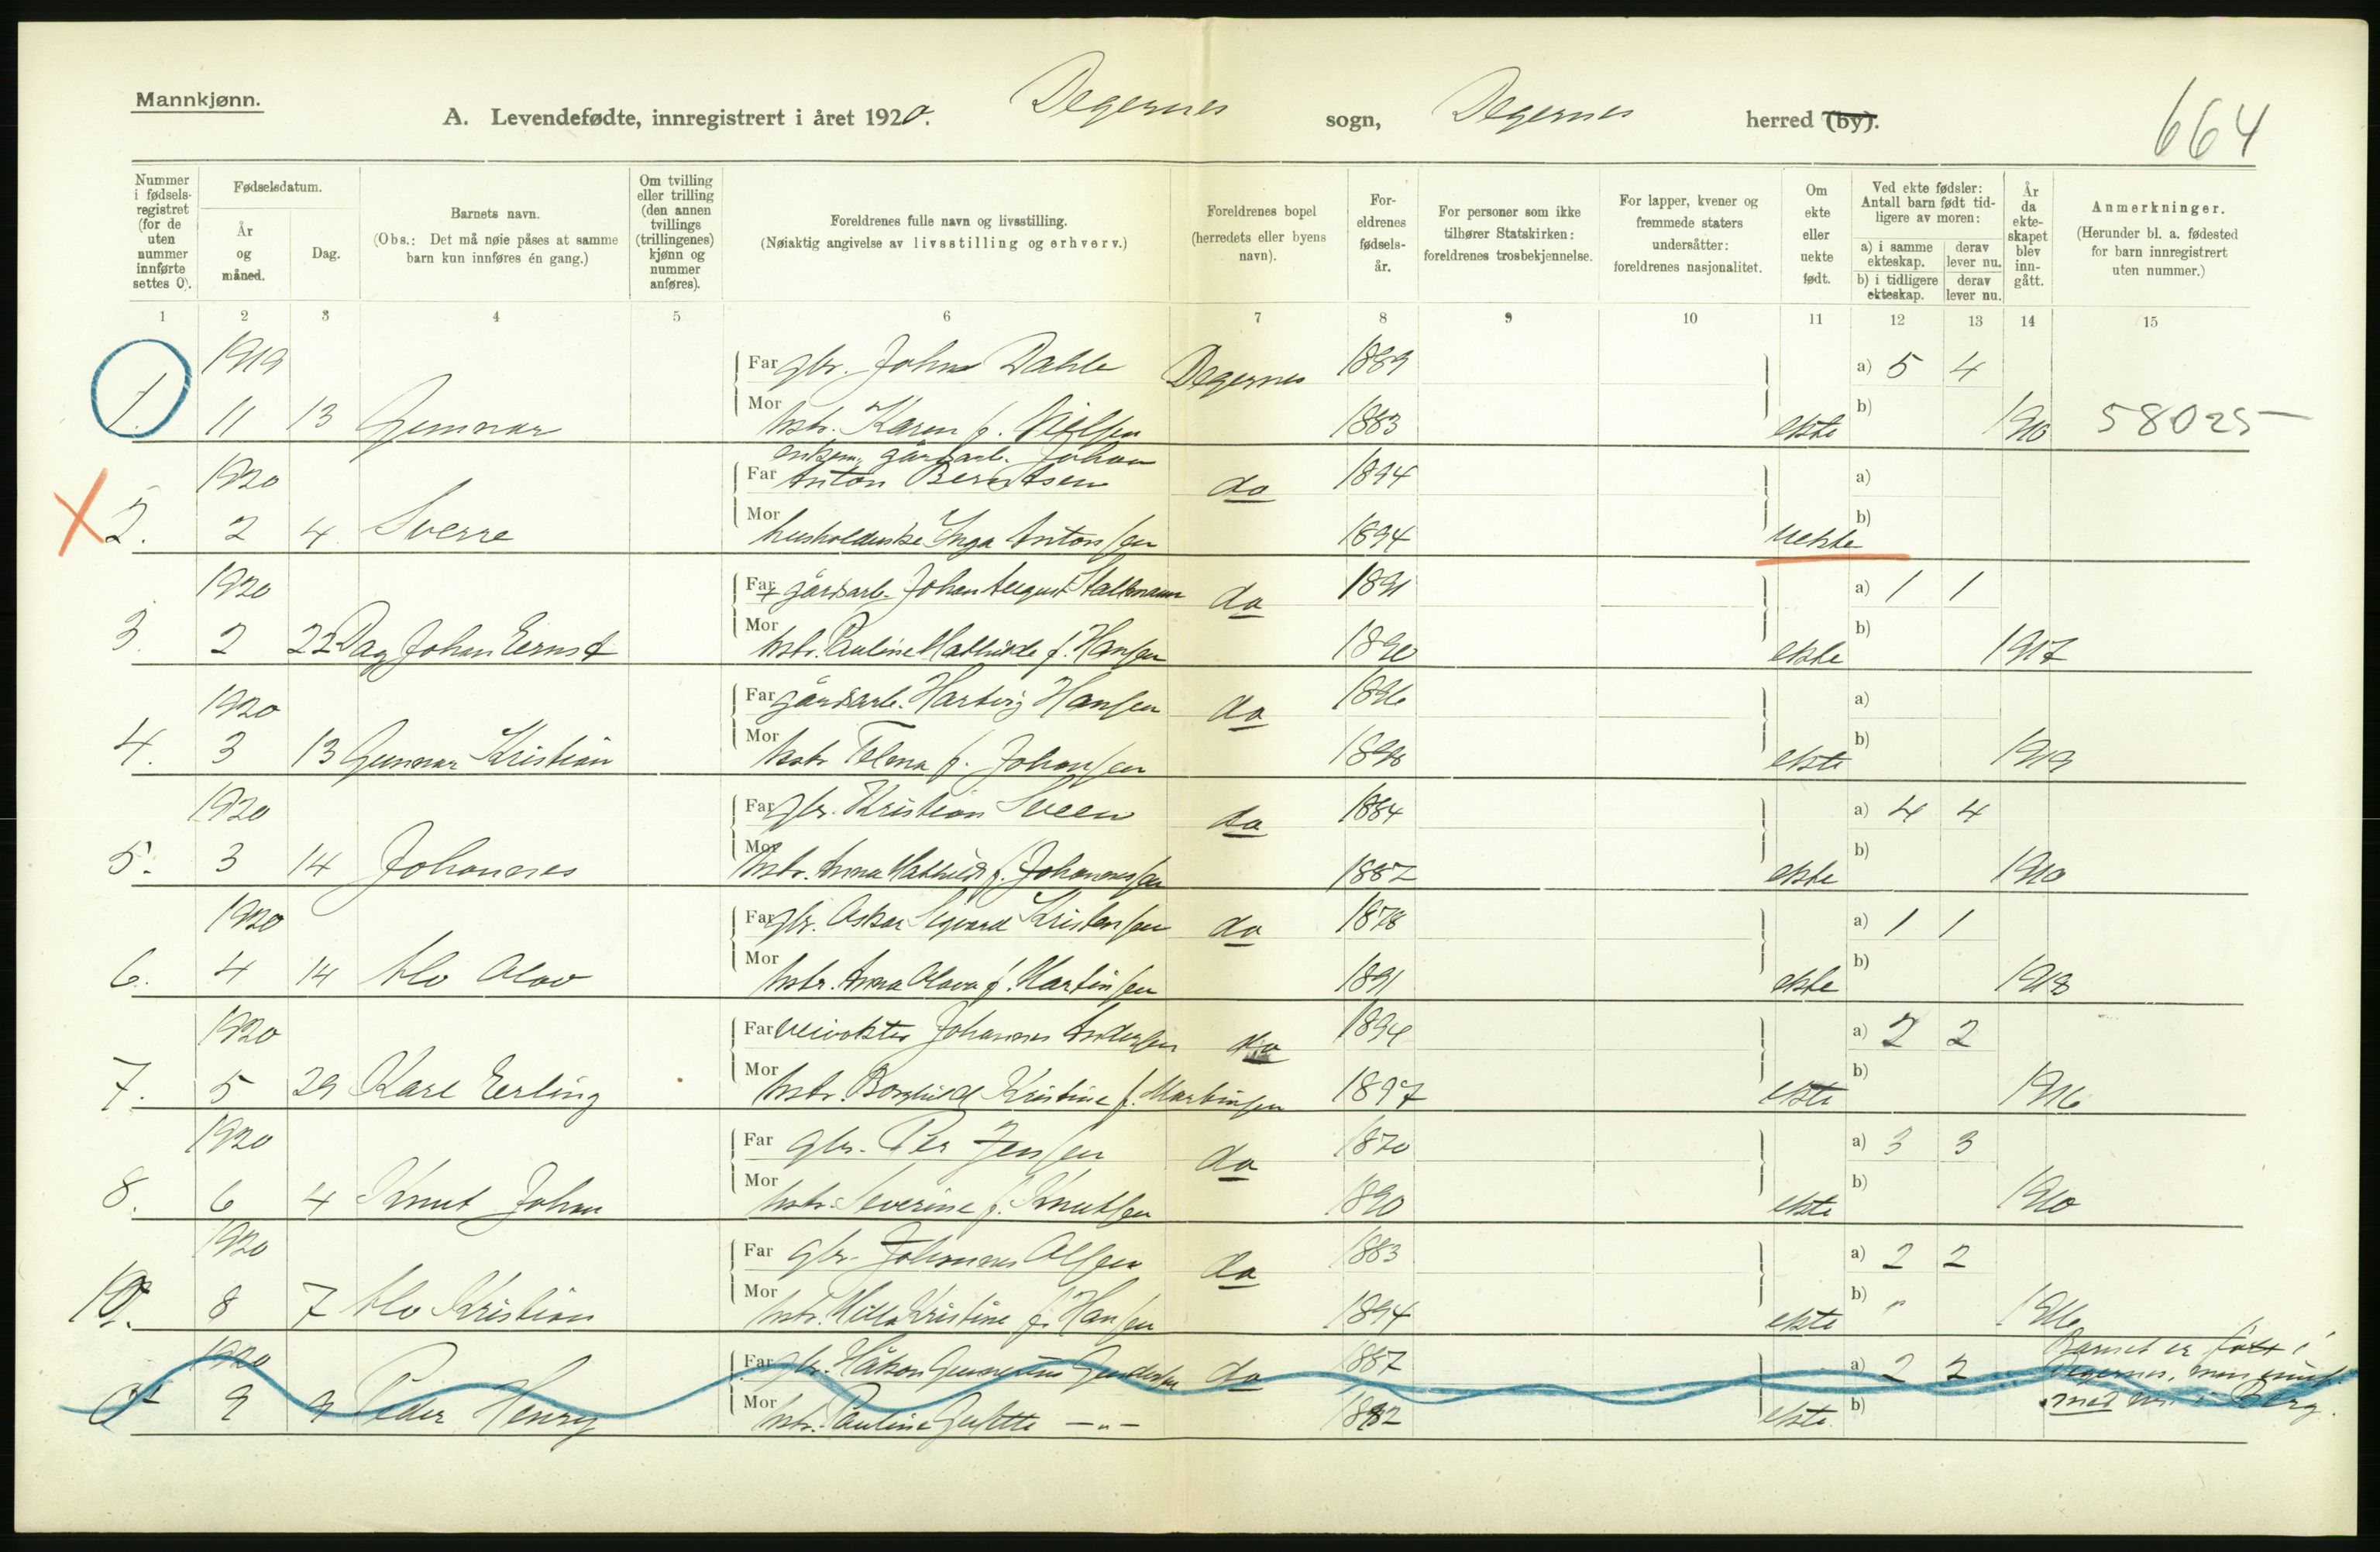 Mannkjønn.
A. Levendefødte, innregistrert i året 1920. Degernes sogn, Degernes herred (by).
664
Nummer i fødselsregistret (for de uten nummer innførte settes 0).
Fødselsdatum.
År og måned.
Dag.
Barnets navn.
(Obs.: Det må nøie påses at samme barn kun innføres én gang.)
Om tvilling eller trilling (den annen tvillings (trillingenes) kjønn og nummer anføres).
Foreldrenes fulle navn og livsstilling.
(Nøiaktig angivelse av livsstilling og erhverv.)
Foreldrenes bopel (herredets eller byens navn).
Foreldrenes fødselsår.
For personer som ikke tilhører Statskirken: foreldrenes trosbekjennelse.
For lapper, kvener og fremmede staters undersåtter: foreldrenes nasjonalitet.
Om ekte eller uekte født.
Ved ekte fødsler: Antall barn født tidligere av moren:
a) i samme ekteskap. derav lever nu.
b) i tidligere ekteskap. derav lever nu.
År da ekteskapet blev inngått.
Anmerkninger.
(Herunder bl. a. fødested for barn innregistrert uten nummer.)
1 2 3 4 5 6 7 8 9 10 11 12 13 14 15
1919 Far gbr. Johan Dahle Degernes 1889 a) 5 4
1. 11 13 Gunnar Mor hstr. Karen f. Nielsen 1883 ekte b) 1910 58025
gårdarb. Johan
1920 Far Anton Berntsen do 1894 a)
2. 2 4 Sverre Mor husholderske Inga Antonsen 1894 uekte b)
1920 Far gårdsarb. Johan August do 1891 a) 1 1
3. 2 22 Dag Johan Ernst Mor hstr. Pauline Mathilde f. Hansen 1890 ekte b) 1917
1920 Far gårdsarb. Hartvig Hansen do 1896 a)
4. 3 13 Gunnar Kristian Mor hstr. f. Johansen ekte b) 1919
1920 Far gbr. Kristian Sveen do 1884 a) 4 4
5. 3 14 Johannes Mor hstr. Anna Mathilde f. Johannessen 1887 ekte b) 1910
1920 Far gbr. Oskar Sigvard Kristensen do 1878 a) 1 1
6. 4 14 Alv Olav Mor hstr. Anna Olava f. Martinsen 1891 ekte b) 1918
1920 Far veivokter Johannes Andersen do 1894 a) 2 2
7. 5 29 Karl Erling Mor hstr. Borghild Kristine f. Martinsen 1897 ekte b) 1916
1920 Far gbr. Per Jensen do 1870 a) 3 3
8. 6 4 Knut Johan Mor hstr. Severine f. Knutsen 1890 ekte b) 1910
1920 Far gbr. Johannes Olsen do 1883 a) 2 2
10. 8 7 Alv Kristian Mor hstr. Milla Kristine f. Hansen 1894 ekte b) " 1916
1920 Far gbr. Håkon Gundersen do 1887 a) 2 2 Barnet er født i Degernes, men
0 9 9 Peder Henry Mor hstr. Pauline —"— 1882 ekte b) med i Berg.